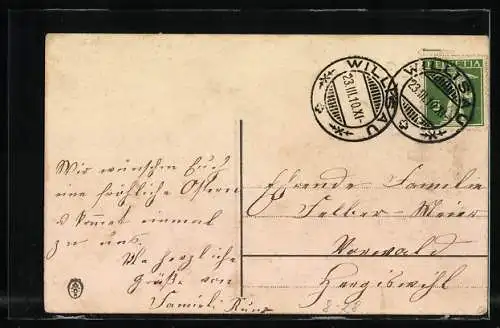 WILLISAU
23.III.10.XI-
WILLISAU
23.III.10
HELVETIA
5
Wir wünschen Euch
eine fröhliche Ostern
u kommet einmal
zu uns.
herzliche
Grüße von
Famieli Kunz
Ehrende Familie
Felber-Meier
Vorwald
Hergiswihl
8-28